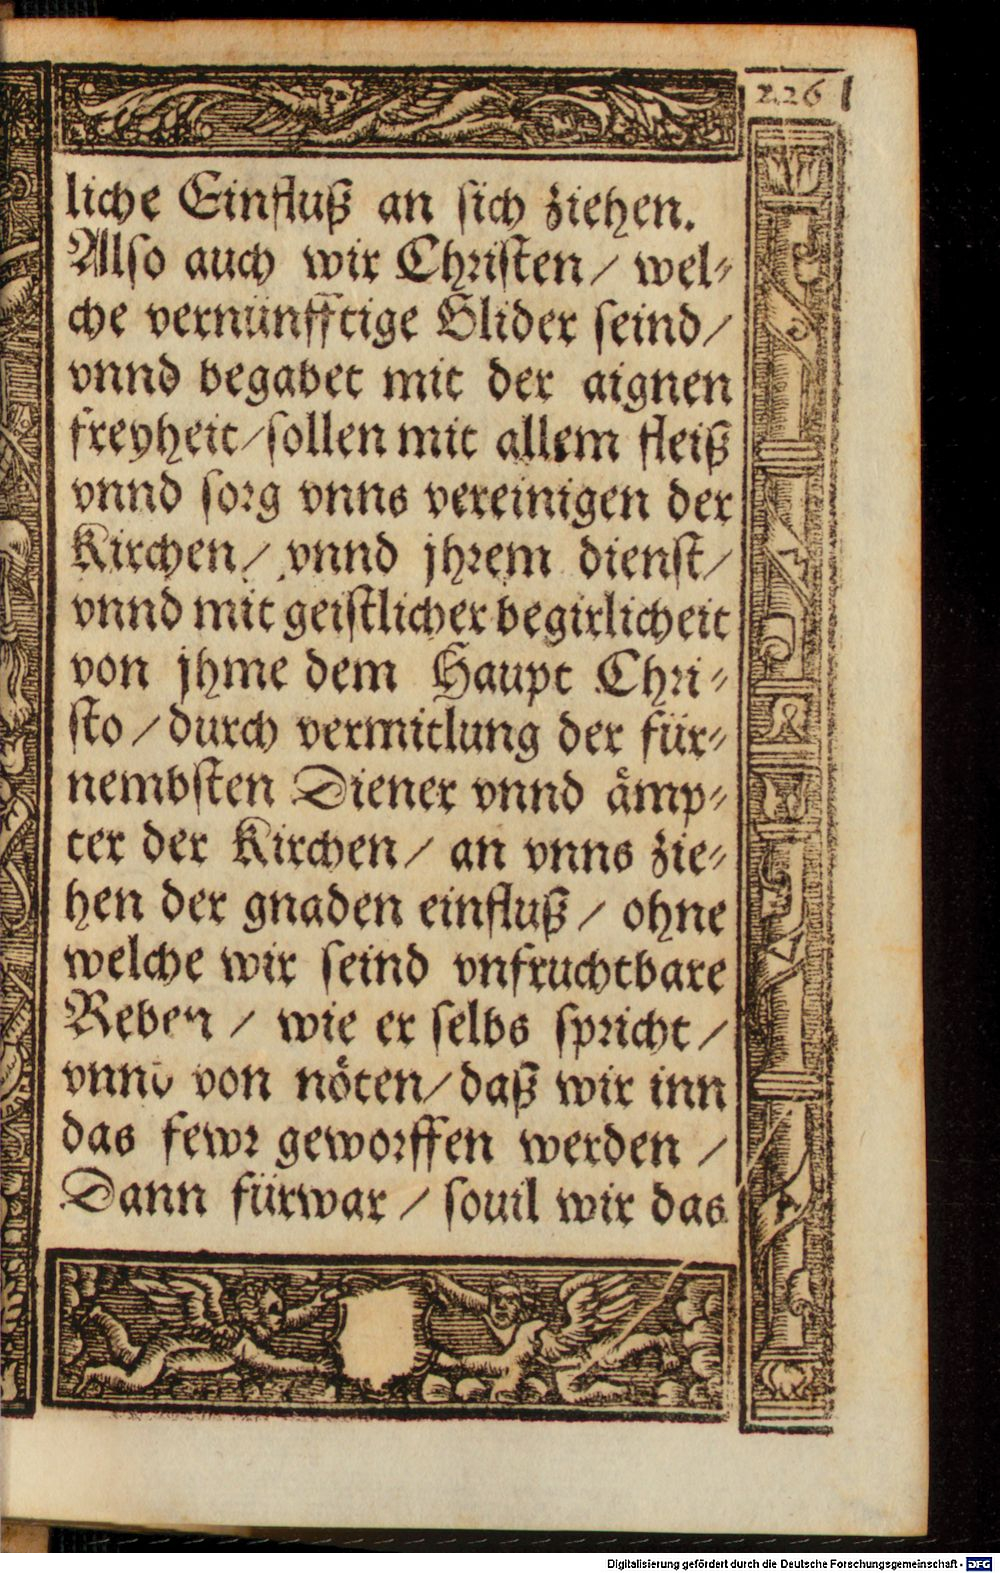 226
liche Einfluß an sich ziehen.
Also auch wir Christen / wel-
che vernünfftige Glider seind /
vnnd begabet mit der aignen
freyheit / sollen mit allem fleiß
vnnd sorg vnns vereinigen der
Kirchen / vnnd jhrem dienst /
vnnd mit geistlicher begirlicheit
von jhme dem Haupt Chri-
sto / durch vermitlung der für-
nembsten Diener vnnd ämp-
ter der Kirchen / an vnns zie-
hen der gnaden einfluß / ohne
welche wir seind vnfruchtbare
Reben / wie er selbs spricht /
vnnd von nöten / daß wir inn
das fewr geworffen werden /
Dann fürwar / souil wir das
Digitalisierung gefördert durch die Deutsche Forschungsgemeinschaft - DFG